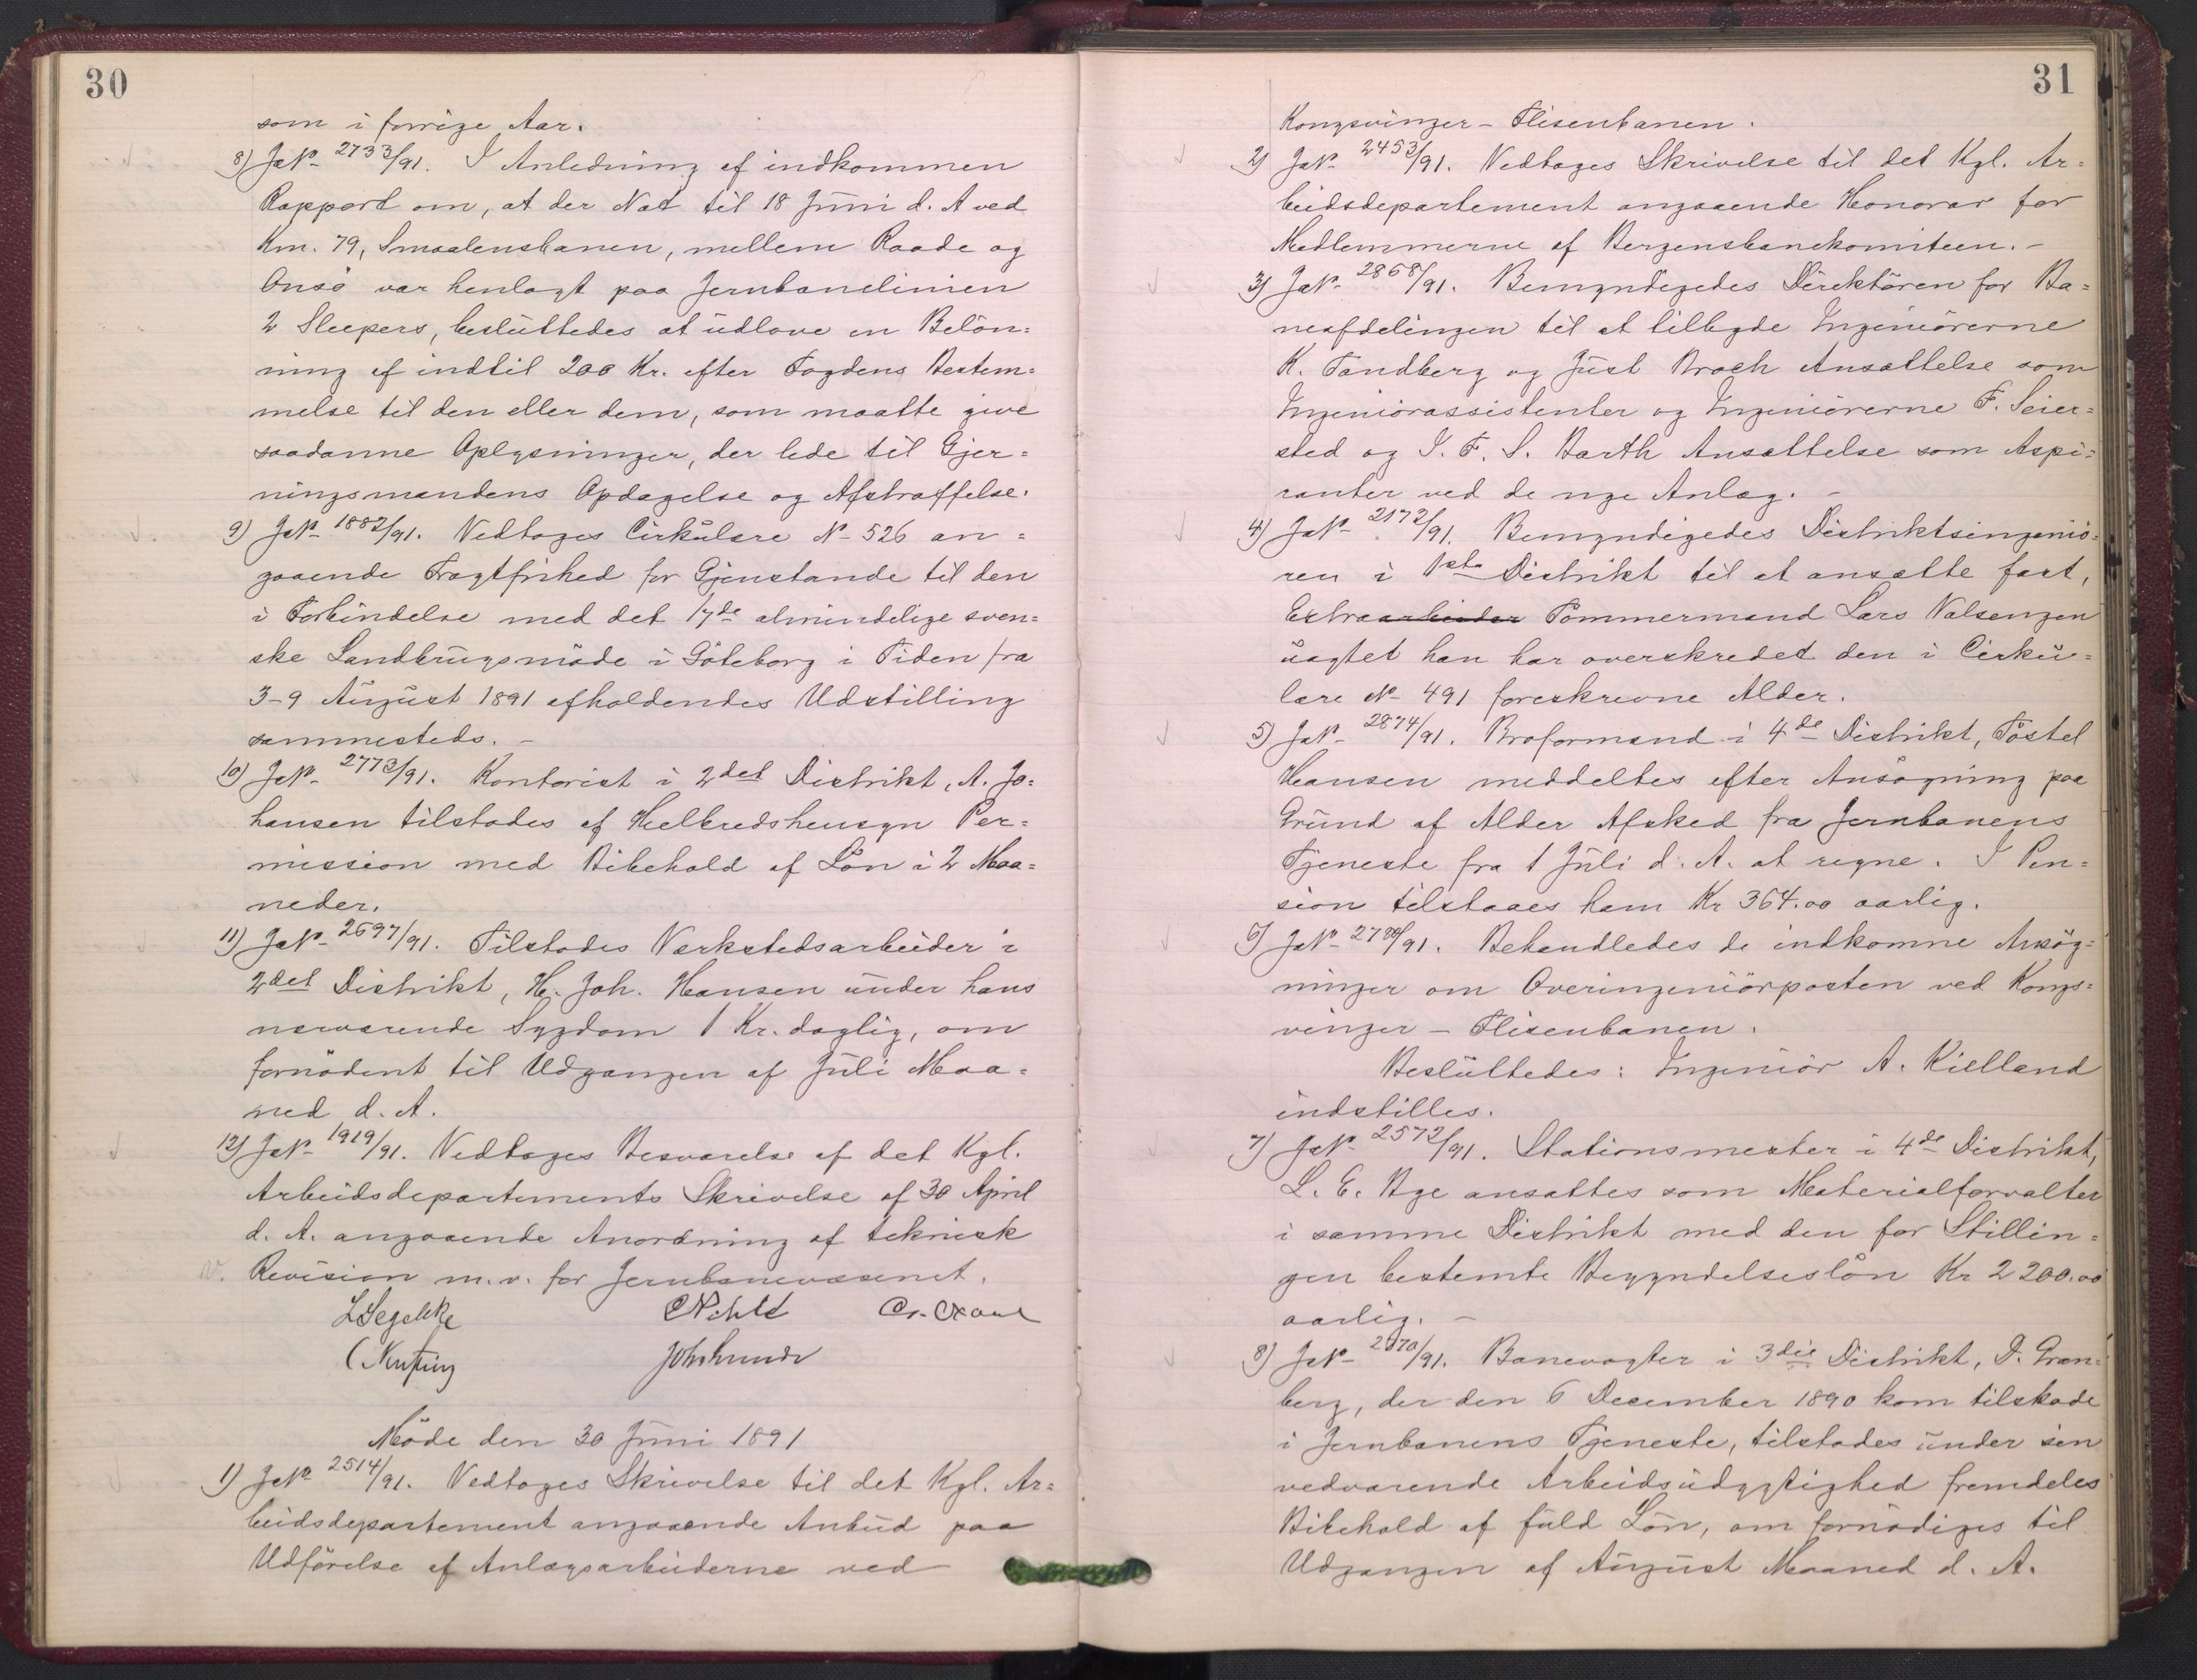 30
som i forrige Aar.
8) JNo 2733/91. I Anledning af indkommen
Rapport om, at der Nat til 18 Juni d. A ved
Km. 79, Smaalensbanen, mellem Raade og
Onsö var henlagt paa Jernbanelinien
2 Sleepers, besluttedes at udlove en Belön=
ning af indtil 200 Kr. efter Fogdens Bestem=
melse til den eller dem, som maatte give
saadanne Oplysninger, der lede til Gjer=
ningsmandens Opdagelse og Afstraffelse.
9) JNo 1882/91. Vedtoges Cirkulære No 526 an=
gaaende Fragtfrihed for Gjenstande til den
i Forbindelse med det 17de almindelige sven=
ske Landbrugsmöde i Göteborg i Tiden fra
3-9 August 1891 afholdendes Udstilling
sammesteds. -
10) JNo 2773/91. Kontorist i 2det Distrikt, A. Jo=
hansen tilstodes af Helbredshensyn Per=
mission med Bibehold af Lön i 2 Maa=
neder.
11) JNo 2697/91. Tilstodes Værkstedsarbeider i
2det Distrikt, H. Joh. Hansen under hans
nærværende Sygdom 1 Kr. daglig, om
fornödent til Udgangen af Juli Maa=
ned d. A.
12) JNo 1919/91. Vedtoges Besvarelse af det Kgl.
Arbeidsdepartements Skrivelse af 30 April
d. A. angaaende Anordning af teknisk
v. Revision m. v. for Jernbanevæsenet.
LSegelcke
Möde den 30 Juni 1891
1) JNo 2514/91. Vedtoges Skrivelse til det Kgl. Ar=
beidsdepartement angaaende Anbud paa
Udförelse af Anlægsarbeiderne ved
31
Kongsvinger - Flisenbanen.
2) JNo 2453/91. Vedtoges Skrivelse til det Kgl. Ar=
beidsdepartement angaaende Honorar for
Medlemmerne af Bergensbanekomiteen. -
3) JNo 2868/91. Bemyndigedes Direktören for Ba=
neafdelingen til at tilbyde Ingeniörerne
K. Tandberg og Just Broch Ansættelse som
Ingeniörassistenter og Ingeniörerne F. Seier=
sted og J. F. S. Barth Ansættelse som Aspi=
ranter ved de nye Anlæg. -
4) JNo 2172/91. Bemyndigedes Distriktsingeniö=
ren i 1ste Distrikt til at ansætte fast,
Extraarbeider Tömmermand Lars Valsengen
uagtet han har overskredet den i Cirku=
lære No 491 foreskrevne Alder.
5) JNo 2874/91. Broformand i 4de Distrikt, Töstel
Hansen meddeltes efter Ansögning paa
Grund af Alder Afsked fra Jernbanens
Tjeneste fra 1 Juli d. A. at regne. I Pen=
sion tilstaaes ham Kr 364.00 aarlig.
6) JNo 2780/91. Behandledes de indkomne Ansög=
ninger om Overingeniörposten ved Kongs=
vinger - Flisenbanen.
Besluttedes: Ingeniör A. Kielland
indstilles.
7) JNo 2572/91. Stationsmester i 4de Distrikt,
L. E. Bye ansattes som Materialforvalter
i samme Distrikt med den for Stillin=
gen bestemte Begyndelseslön Kr 2200.00
aarlig. -
8) JNo /91. Banevogter i 3die Distrikt, D. Gran=
berg, der den 6 December 1890 kom tilskade
i Jernbanens Tjeneste, tilstodes under sin
vedvarende Arbeidsudygtighed fremdeles
Bibehold af fuld Lön, om fornödiges til
Udgangen af August Maaned d. A.